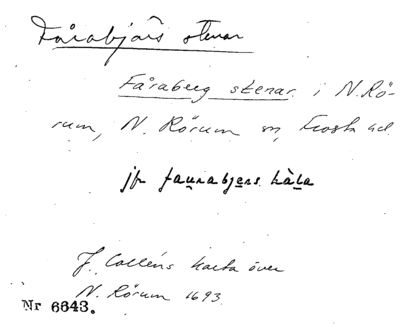 Fårabjärs stenar
Fåraberg stenar i N. Rö-
rum, N. Rörum sn, Frosta hd.
jfr faurabjers håla
J. Colléns karta över
N. Rörum 1693.
Nr 6643.